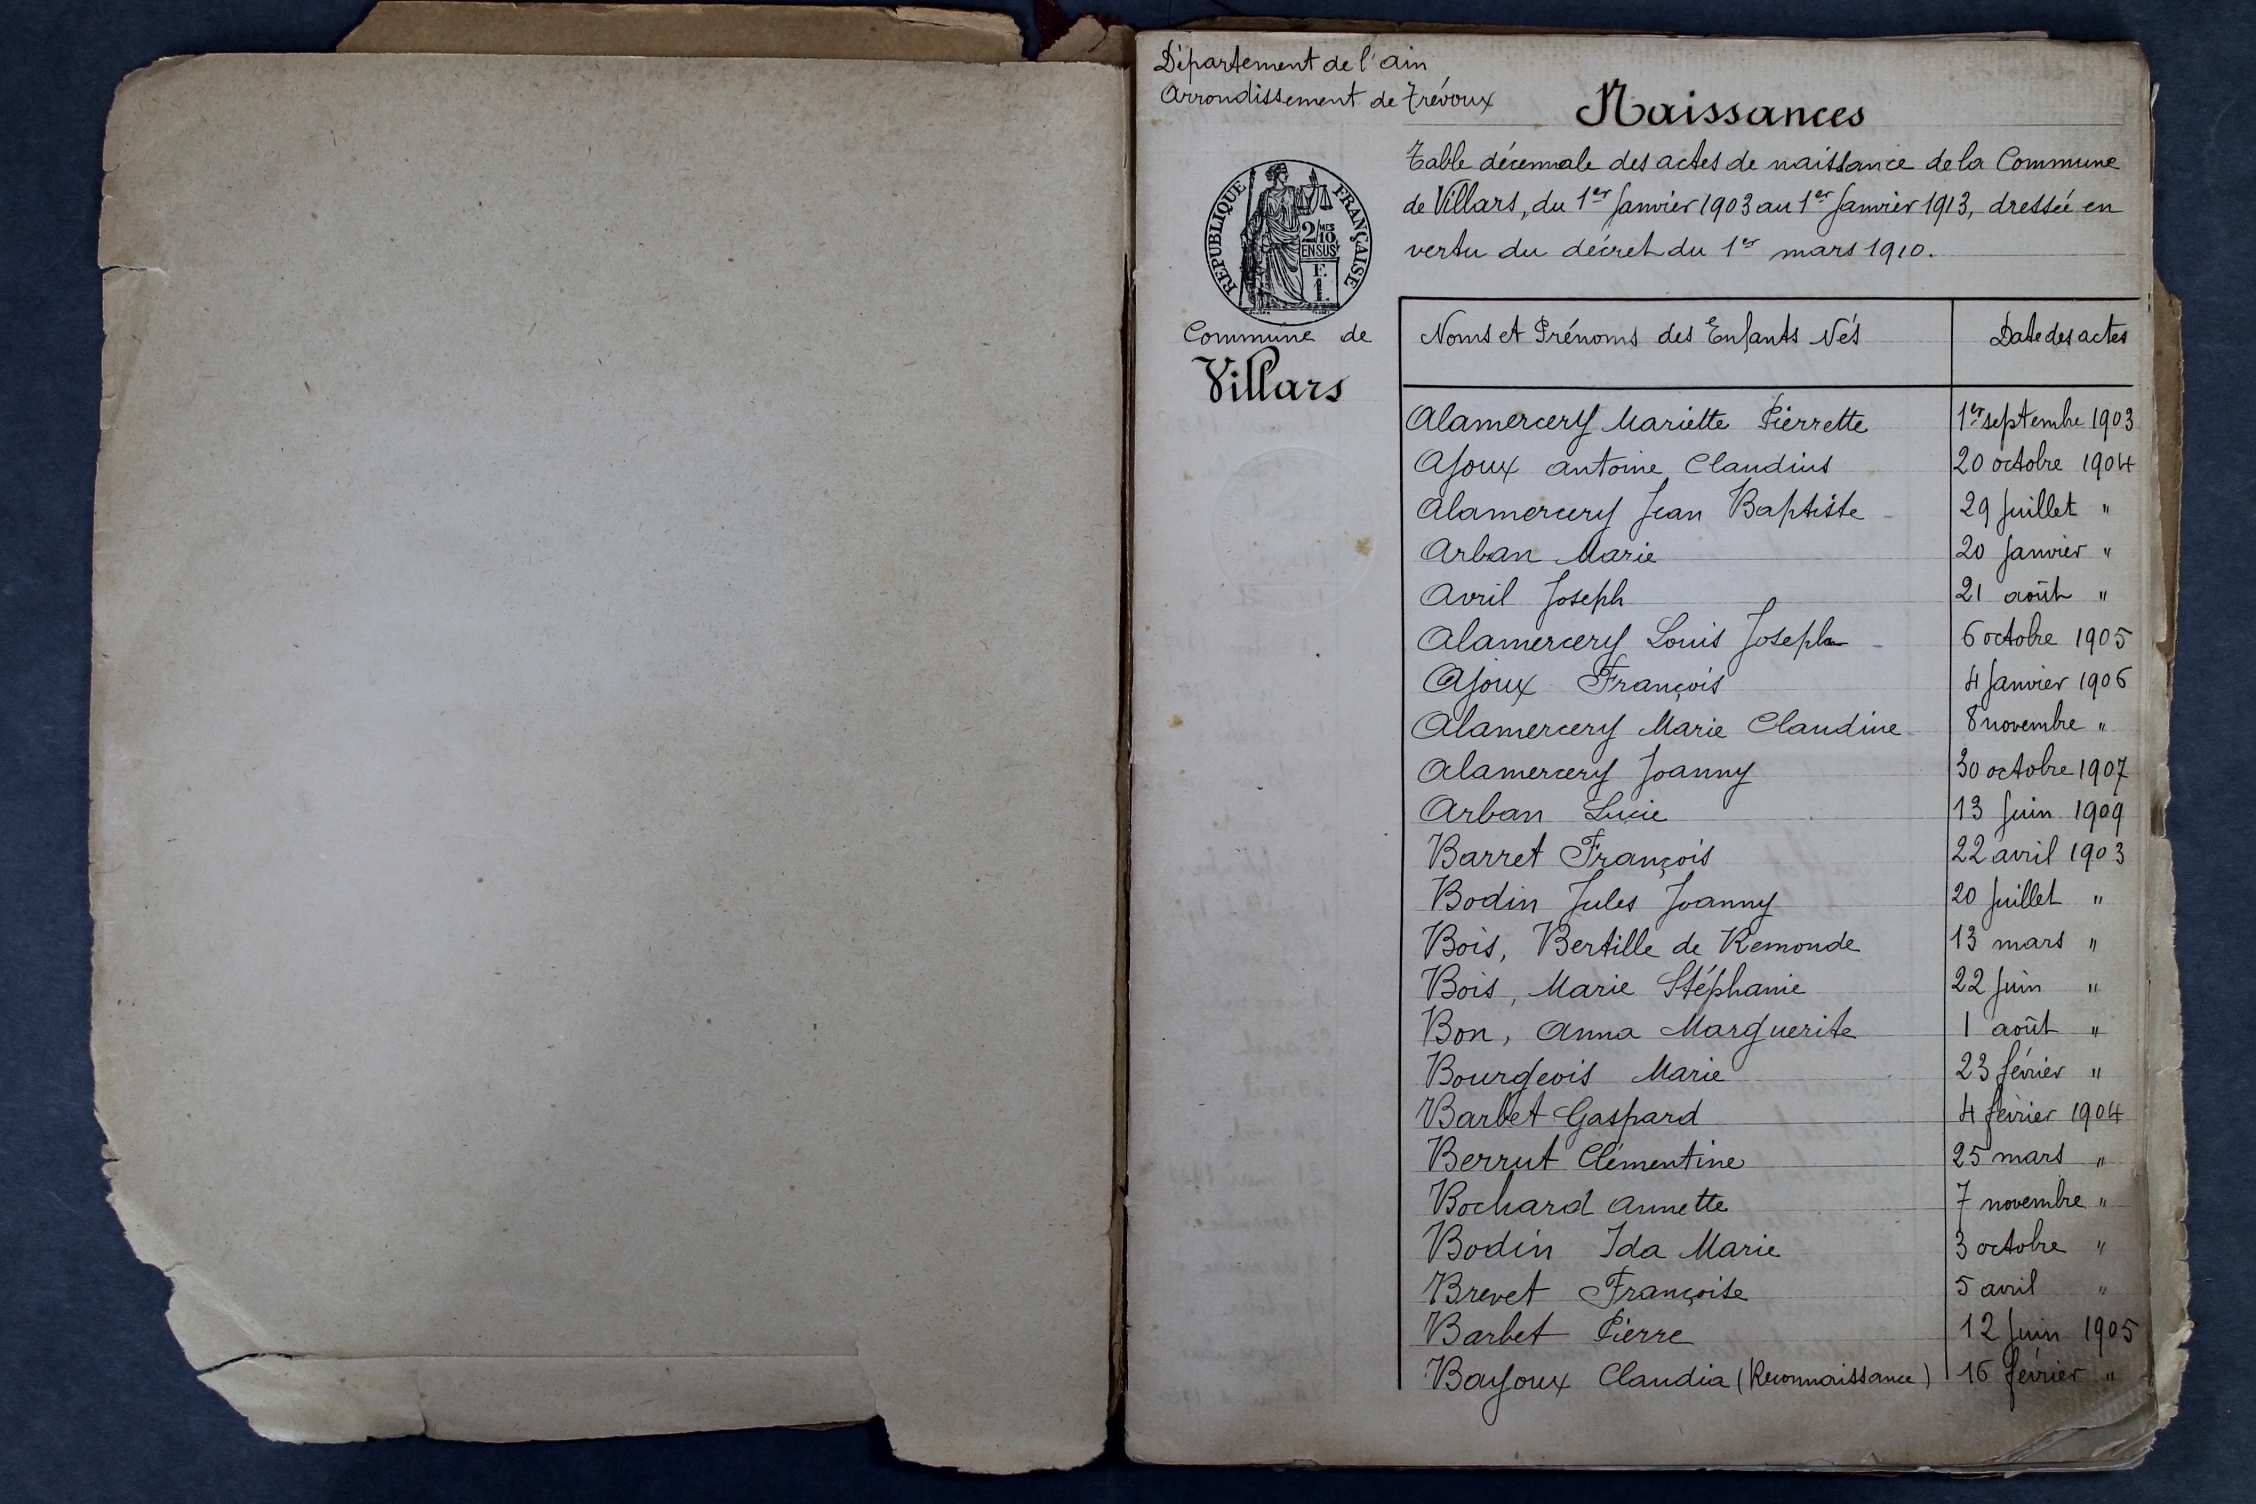 Département de l'ain
Arrondissement de Trévoux
Naissances
Table décennale des actes de naissance de la Commune
de Villars, du 1er Janvier 1903 au 1er Janvier 1913, dressée en
vertu du décret du 1er mars 1910.
REPUBLIQUE FRANÇAISE
2/MES 10
EN SUS
F.
1.
Commune de
Villars
Noms et Prénoms des Enfants Nés Date des actes
Alamercery Mariette Pierrette 1er septembre 1903
Ajoux antoine Claudius 20 octobre 1904
Alamercery Jean Baptiste 29 Juillet "
Arban Marie 20 Janvier "
Avril Joseph 21 août "
Alamercery Louis Joseph 6 octobre 1905
Ajoux François 4 Janvier 1906
Alamercery Marie Claudine 8 novembre "
Alamercery Joanny 30 octobre 1907
Arban Lucie 13 Juin 1909
Barret François 22 avril 1903
Bodin Jules Joanny 20 Juillet "
Bois, Bertille de Remonde 13 mars "
Bois, Marie Stéphanie 22 Juin "
Bon, Anna Marguerite 1 août "
Bourgeois Marie 23 février "
Barbet Gaspard 4 février 1904
Berrut Clémentine 25 mars "
Bochard Annette 7 novembre "
Bodin Ida Marie 3 octobre "
Brevet Françoise 5 avril "
Barbet Pierre 12 Juin 1905
Bajoux Claudia (Reconnaissance) 16 février "